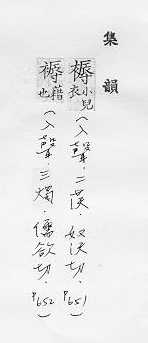 集韻
褥小兒衣（入聲．二沃．奴沃切．P651）
褥藉也（入聲．三燭．儒欲切．P652）